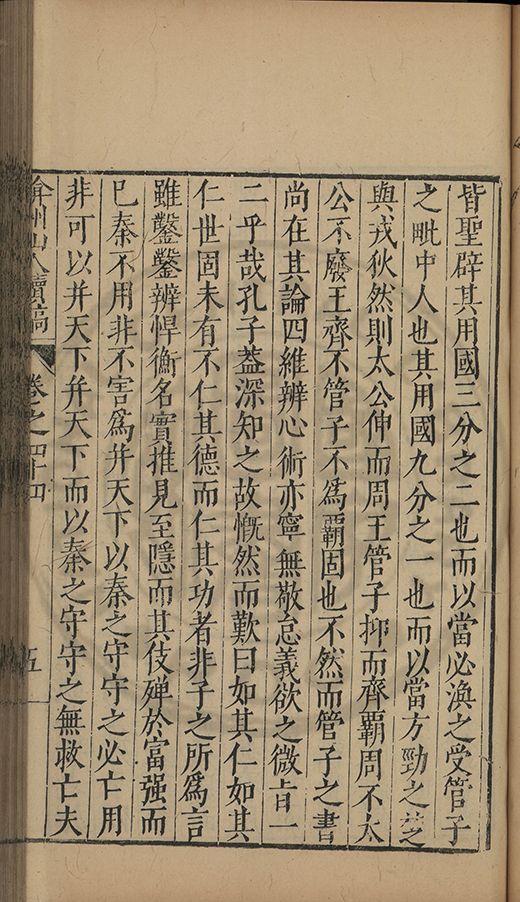 皆聖辟其用國三分之二也而以當必渙之受管子
之毗中人也其用國九分之一也而以當方勁之楚
與戎狄然則太公伸而周王管子抑而齊覇周不太
公不廢王齊不管子不為覇固也不然而管子之書
尚在其論四維辨心術亦寧無敬怠義欲之微旨一
二乎哉孔子葢深知之故慨然而歎曰如其仁如其
仁世固未有不仁其德而仁其功者非子之所為言
雖鑿鑿辨悍衡名實推見至隱而其伎殫於富强而
已秦不用非不害為并天下以秦之守守之必亡用
非可以并天下并天下而以秦之守守之無救亡夫
弇州山人續稿 卷之四十四 五